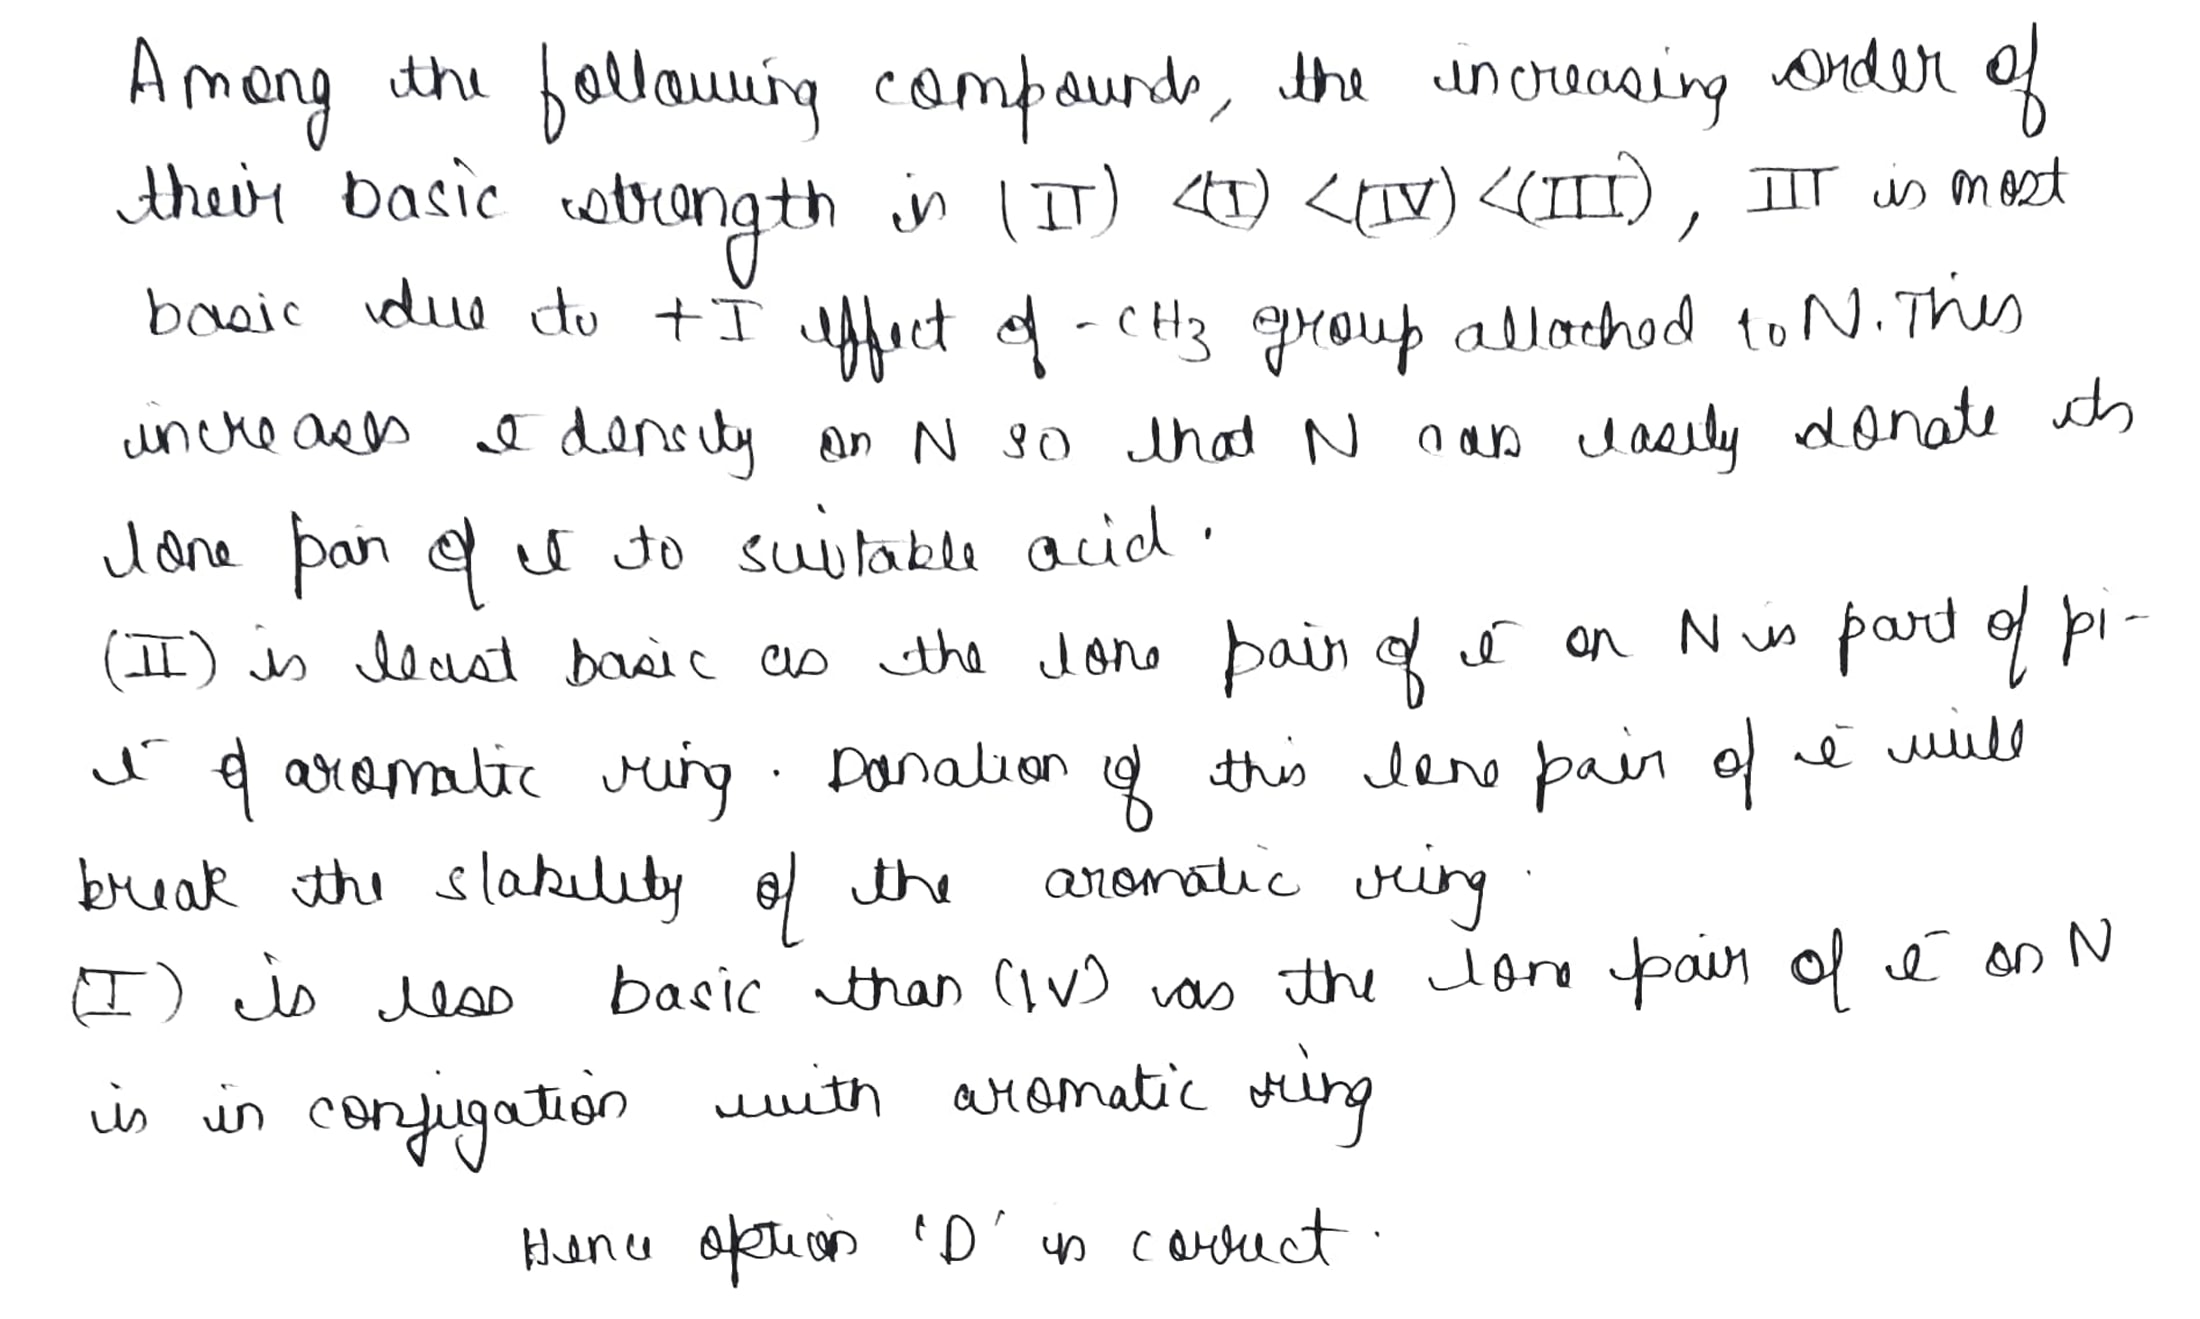 Among the following compounds, the increasing order of
their basic strength is (II) <(I) <(IV) <(III), III is most
basic due to +I effect of -CH3 group attached to N. This
increases e⁻ density on N so that N can easily donate its
lone pair of e⁻ to suitable acid.
(II) is least basic as the lone pair of e⁻ on N is part of pi-
e⁻ of aromatic ring. Donation of this lone pair of e⁻ will
break the stability of the aromatic ring.
(I) is less basic than (IV) as the lone pair of e⁻ on N
is in conjugation with aromatic ring
Hence option 'D' is correct.